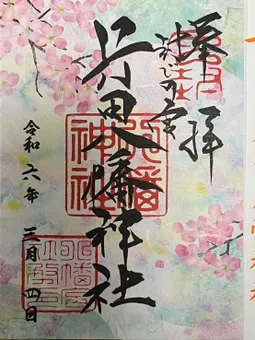 奉拝
封じの宮
行田八幡神社
八幡神社
令和六年 三月 四日